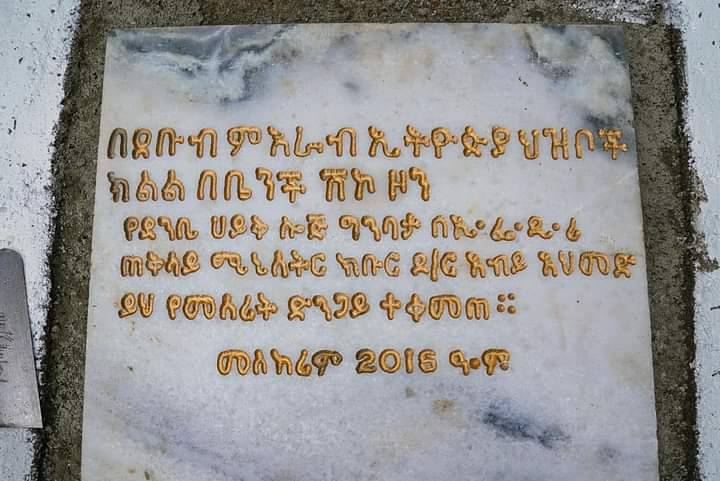 በደቡብ ምእራብ ኢትዮጵያ ህዝቦች
ክልል በቤንች ሸኮ ዞን
የደንቢ ሀይቅ ሎጅ ግንባታ በኢ.ፌ.ዲ.ሪ
ጠቅላይ ሚኒስትር ክቡር ዶ/ር አብይ አህመድ
ይህ የመሰረት ድንጋይ ተቀመጠ።
መስከረም 2016 ዓ.ም